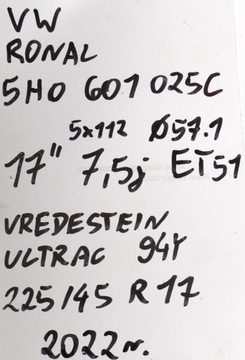 VW
RONAL
5H0 601 025C
5x112 Ø57.1
17" 7,5j ET51
VREDESTEIN
ULTRAC 94Y
225/45 R17
2022r.